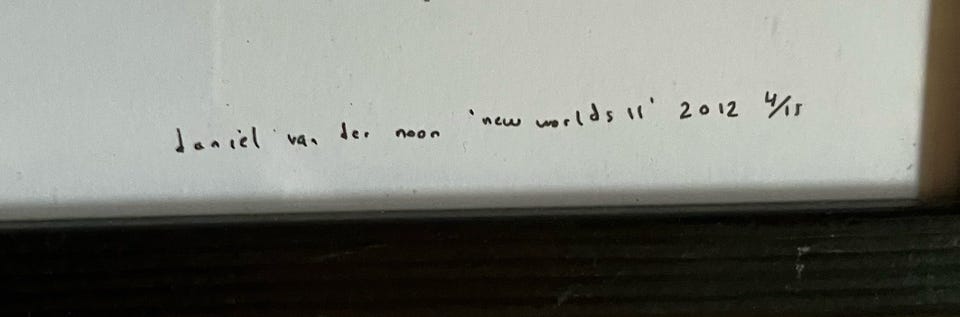 daniel van der noon 'new worlds II' 2012 4/15